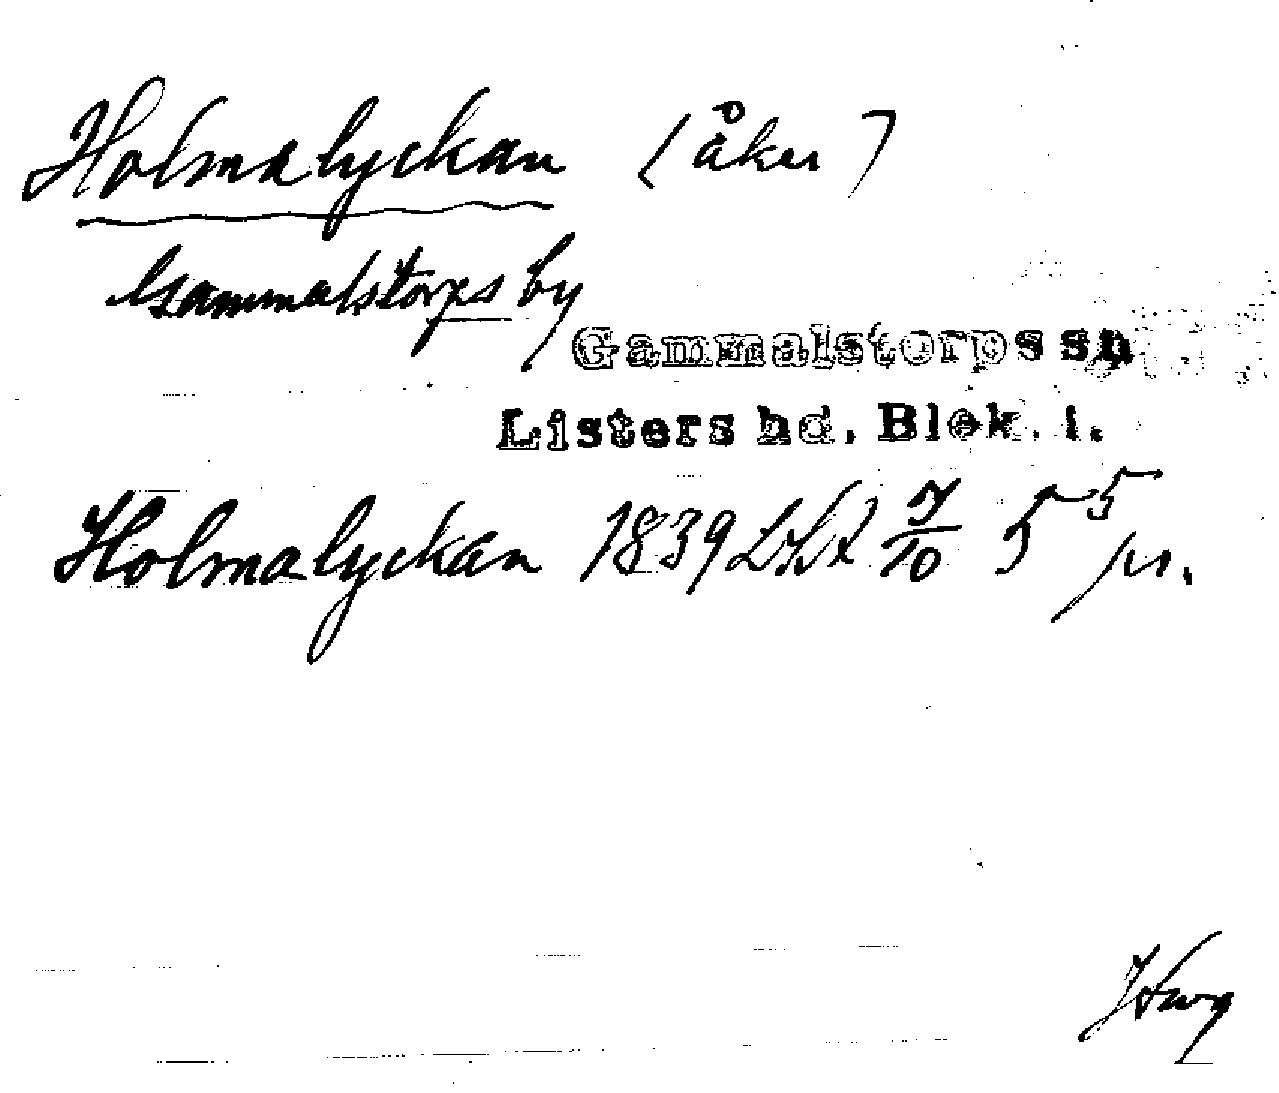 Holmalyckan (åker)
Gammalstorps by
Gammalstorps sn
Listers hd. Blek. l.
Holmalyckan 1839 LSA 7/10 5